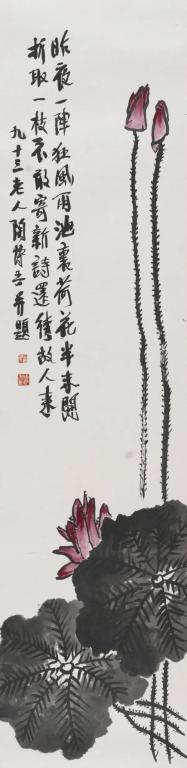 昨夜一陣狂風雨池裏荷花半未開
折取一枝不敢寄新詩還待故人來
九十三老人陶博吾并題